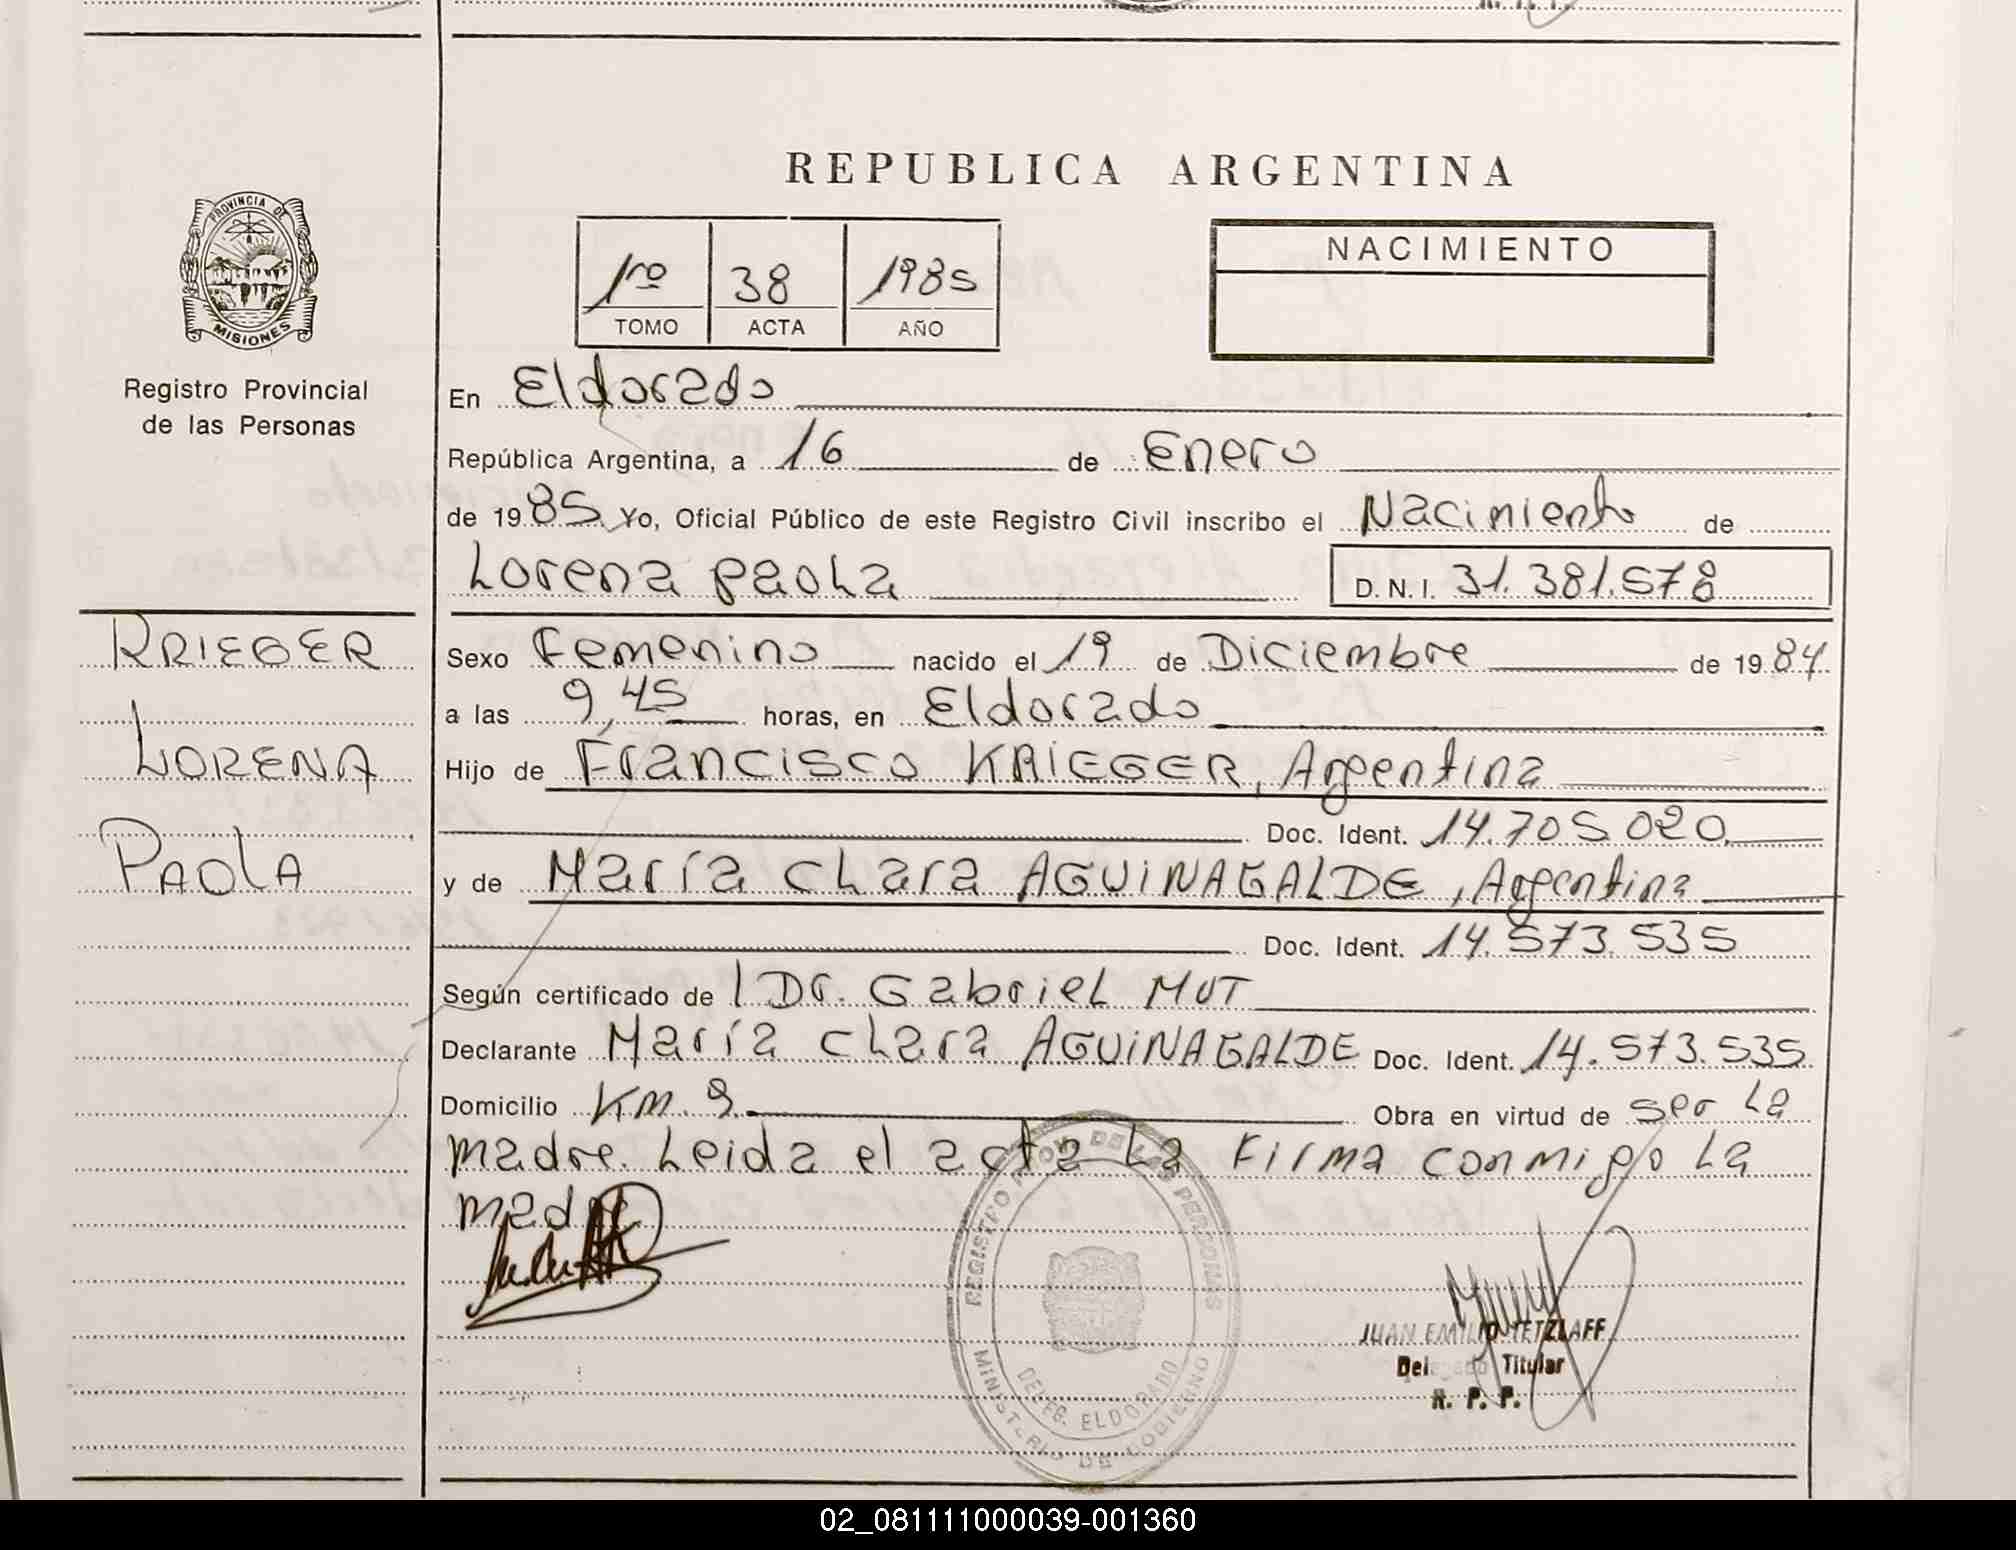 REPUBLICA ARGENTINA
PROVINCIA DE
MISIONES
Registro Provincial
de las Personas
1ro 38 1985
TOMO ACTA AÑO
NACIMIENTO
En Eldorado
República Argentina, a 16 de Enero
de 1985 Yo, Oficial Público de este Registro Civil inscribo el Nacimiento de
Lorena Paola D.N.I. 31.381.578
KRIEGER
LORENA
PAOLA
Sexo Femenino nacido el 19 de Diciembre de 1984
a las 9,45 horas, en Eldorado
Hijo de Francisco KRIEGER, Argentina
Doc. Ident. 14.705.020
y de María Clara AGUINAGALDE, Argentina
Doc. Ident. 14.573.535
Según certificado de l Dr. Gabriel MUT
Declarante María Clara AGUINAGALDE Doc. Ident. 14.573.535
Domicilio Km. 9 Obra en virtud de ser la
madre. Leida el acta la firma conmigo la
madre
REGISTRO PROV. DE LAS PERSONAS
DELEG. ELDORADO
MINISTERIO DE GOBIERNO
JUAN EMILIO TETZLAFF
Delegado Titular
R. P. P.
02_081111000039-001360